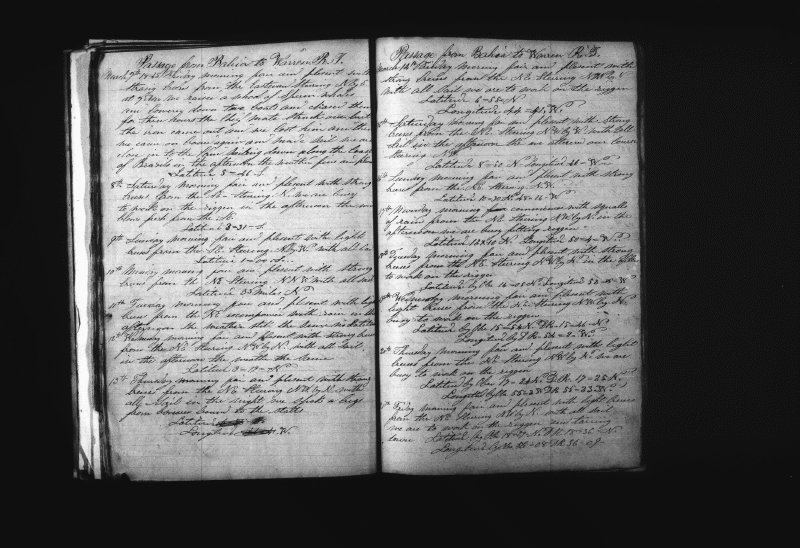 Passage from Bahia to Warren R. I.
March 7th 1845 Friday morning fair and plesent with
strong brees from the Eastern Stering N by E
at 7 we raise a school of Sperm whale
we lowerd down two boats and chased them
for two hours the they mate struck one but
the iron came out and we lost him and then
we came on bord again and made sail we are
close in to the land along the Coast
of Brazils in the afternoon the weather fair and plesent
Latitude 5-46-S.
8th Saturday morning fair and plesent with strong
brees from the Stering N. we are busy
to work on the riggen in the afternoon the wind
blew fresh from the SE
Latitude 3-31-S.
9th Sunday morning fair and plesent with light
brees from the SE. Stering N by W. with all sail
Latitude 1-00-S.
10th Monday morning fair and plesent with strong
brees from the NE Stering N N W with all sail
Latitude 35 Miles N
11th Tuesday morning fair and plesent with light
brees from the NE accompanied with rain in the
afternoon the weather still the same
12th Wednesday morning fair and plesent with strong brees
from the NE Stering NW by N. with all sail
in the afternoon the weather the same
Latitude 3-19-N
13th Thursday morning fair and plesent with strong
brees from the NE Stering NW by N. with
all sail in the night we spoke a brig
from bound to the states
Latitude
Longitude W.
Passage from Bahia to Warren R. I.
March 14th Friday morning fair and plesent with
strong brees from the NE Stering NW by N
with all sail we are to work on the riggen
Latitude 6-55-N.
Longitude 44-41, W.
15th Saturday morning fair and plesent with strong
brees from the NE Stering NW by N. with all
sail in the afternoon the we altered our course
Stering N.W.
Latitude 8-10 N. Longitude 46-W.
16th Sunday morning fair and plesent with strong
brees from the NE Stering N.W.
Latitude 10-30 N. 48-14-W
17th Monday morning fair commences with squalls
of rain from the NE Stering NW by N. in the
afternoon we are busy fitting riggen
Latitude 12-40 N. Longitude 50-4-W.
18th Tuesday morning fair and plesent with strong
brees from the NE Stering NW by N. in the after
to work on the riggen
Latitude by Ob 14-01 N. Longitude 52-15-W
19th Wednesday morning fair and plesent with
light brees from the NE Stering NW by N.
busy to work on the riggen
Latitude by Ob 15-54 N. D.R. 15-46-N
Longitude by D.R. 54-8-W.
20th Thursday morning fair and plesent with light
brees from the NE Stering NW by N. we are
busy to work on the riggen
Latitude by Obs 17-24 N. D.R. 17-25 N
Longitude by Ob 55-3 W. D.R. 55-23 W.
21st Friday morning fair and plesent with light brees
from the NE Stering NW by N. with all sail
we are to work on the riggen and taring
down Latitude by Ob 18-27-N. D.R. 18-36-N.
Longitude by Ob 56-08 D.R. 56-09